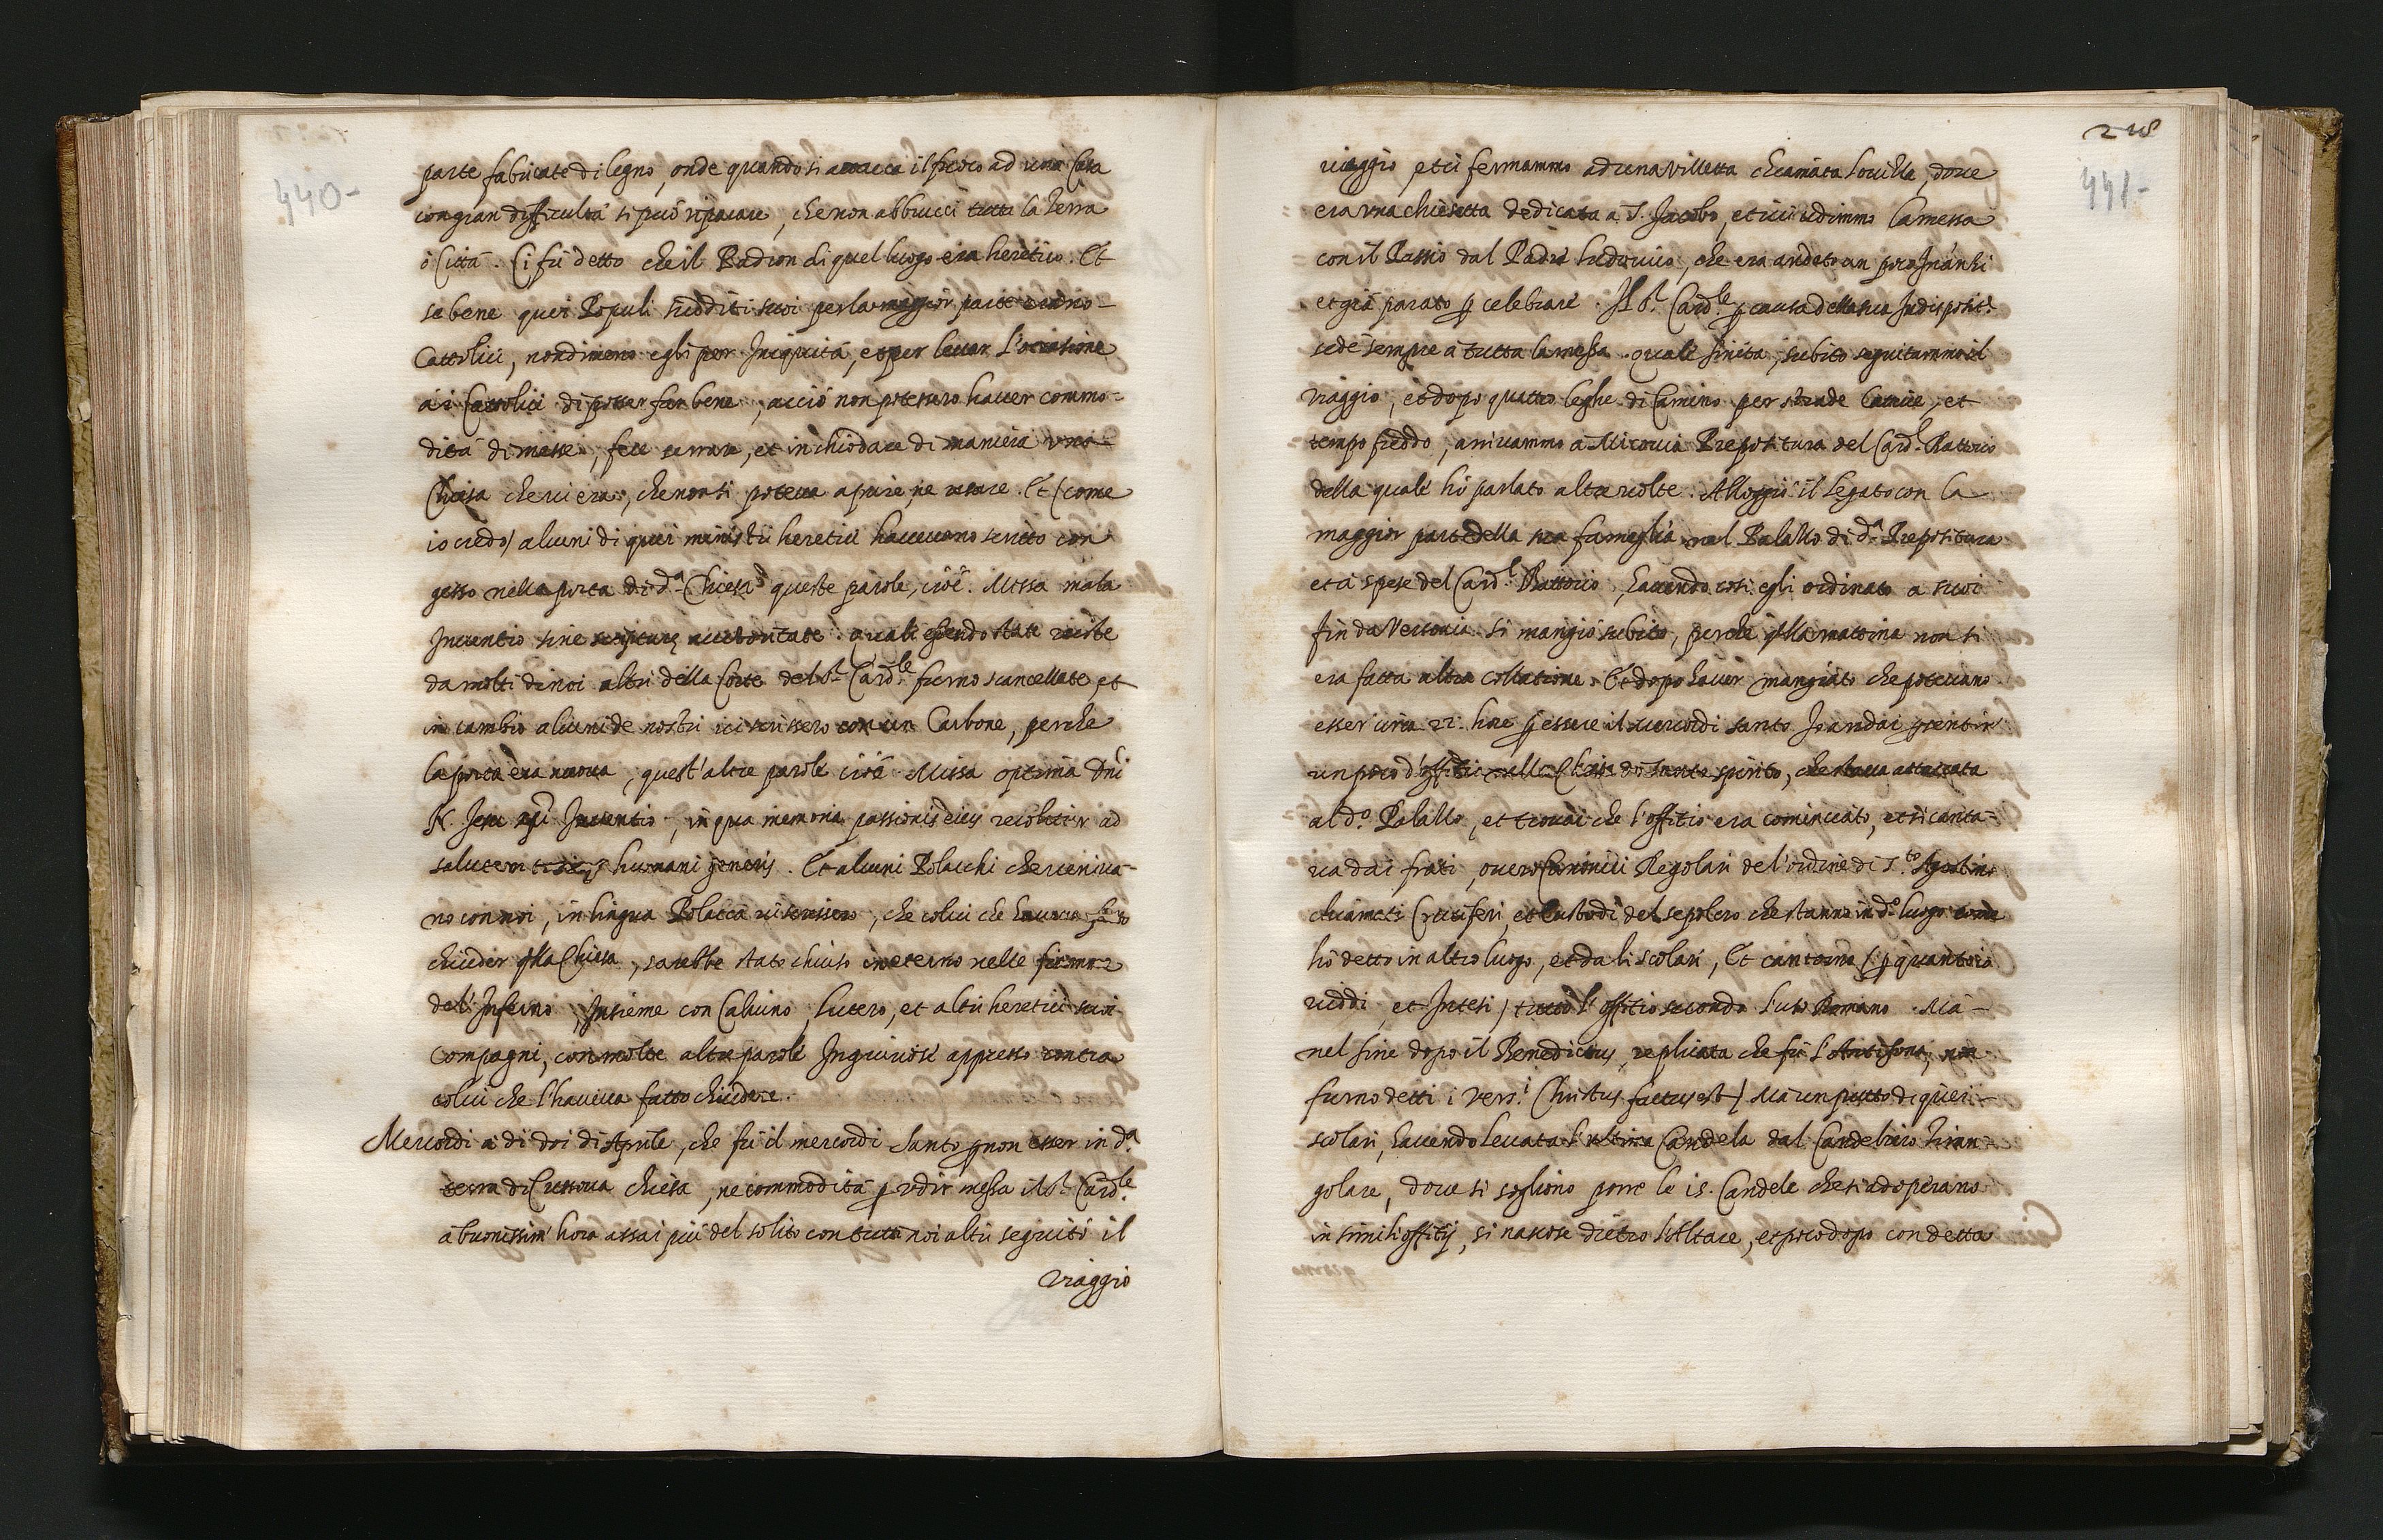 440-
parte fabricate di legno, onde quando si attacca il fuoco ad una Casa
con gran difficultà si può riparare, che non abbrucci tutti la terra
ò Città. Ci fù detto che il Padron di quel luogo era heretico. Et
se bene quei Populi sudditi suoi per la maggior parte erano
Cattolici, nondimeno egli per Iniquità, et per levar l'occasione
ài Cattolici di poter far bene, acciò non potessero haver commo-
dità di messe, fece serrare, et inchiodare di maniera una
Chiesa che vi era, che non si poteva aprire, ne usare. Et (come
io credo) alcuni di quei ministri heretici havevano scritto con
gesso nella porta di d.ª Chiesa queste parole, cioè. Missa mala
Inventio sine scripturę authoritate. Quali essendo state viste
da molti di noi altri della Corte del S.r Card.le furno scancellate et
in cambio alcuni de nostri vi scrissero con un Carbone, perche
la porta era nuova, quest'altre parole cioè Missa optima Dñi
N. Jesu xp̃i Inventio, in qua memoria passionis eius recolitur ad
salutem humani generis. Et alcuni Polacchi che veniva-
no con noi, in lingua Polacca vi scrissero, che colui che haveva fatto
chiuder q̃lla Chiesa, sarebbe stato chiuso in eterno nelle fiamme
del'Inferno, Insieme con Calvino, Lutero, et altri heretici suoi
compagni, con molte altre parole Ingiuriose appresso contra
colui che l'haveva fatto chiudere.
Mercordi à di doi di Aprile, che fù il mercordi Santo ꝑ non esser in d.ª
terra di Cussova chiesa, ne commodità ꝑ udir messa il S.r Card.le
à buonissim'hora assai più del solito con tutti noi altri seguitò il
viaggio
218
441-
viaggio, et ci fermammo ad una villetta chiamata Lovilla, dove
era una chiesetta dedicata à S. Jacobo, et ivi udimmo la messa
con il Passio dal Padre Ludovico, che era andato un poco Inanzi
et già parato ꝑ celebrare. Il S.r Card.le ꝑ causa della sua Indisposit.e
sedè sempre à tutta la messa. quale finita, subito seguitammo il
viaggio, et dopo quattro leghe di Camino per strade cattive, et
tempo freddo, arrivammo a Micovia Prepositura del Card.l Rattivio
della quale hò parlato altre volte. Alloggiò il Legato con la
maggior parte della sua fameglia nel Palazzo di d.ª Prepositura
et à spese del Card.l Rattivio, havendo così egli ordinato a suoi
fin da Versovia. Si mangiò subito, perche q̃lla mattina non si
era fatta altra collatione. Et dopo haver mangiato che potevano
esser circa 22. hore ꝑ essere il mercordi santo Io andai ꝑ sentir
un poco d'offitio nella Chiesa di Santo spirito, che stava attaccata
al d.º Palazzo, et trovai che l'offitio era cominciato, et si canta-
va dai frati, overo Canonici Regolari del'ordine di S.to Agostino
chiamati Cruciferi, et Custodi del sepolcro che stanno in d.º luogo come
hò detto in altro luogo, et da li scolari, Et cantorno (ꝑ quanto io
viddi et Intesi) tutto l'offitio secondo l'uso Romano. Mà
nel fine dopo il Benedictus, replicata che fù l'Antifona, non
furno detti i Vers.i (Christus factus est) Mà un putto di quei
scolari, havendo levata l'ultima Candela dal Candeliero Trian-
golare, dove si sogliono porre le 15. Candele che si adoperano
in simili offitij, si nascose dietro l'Altare, et poco dopo con detta